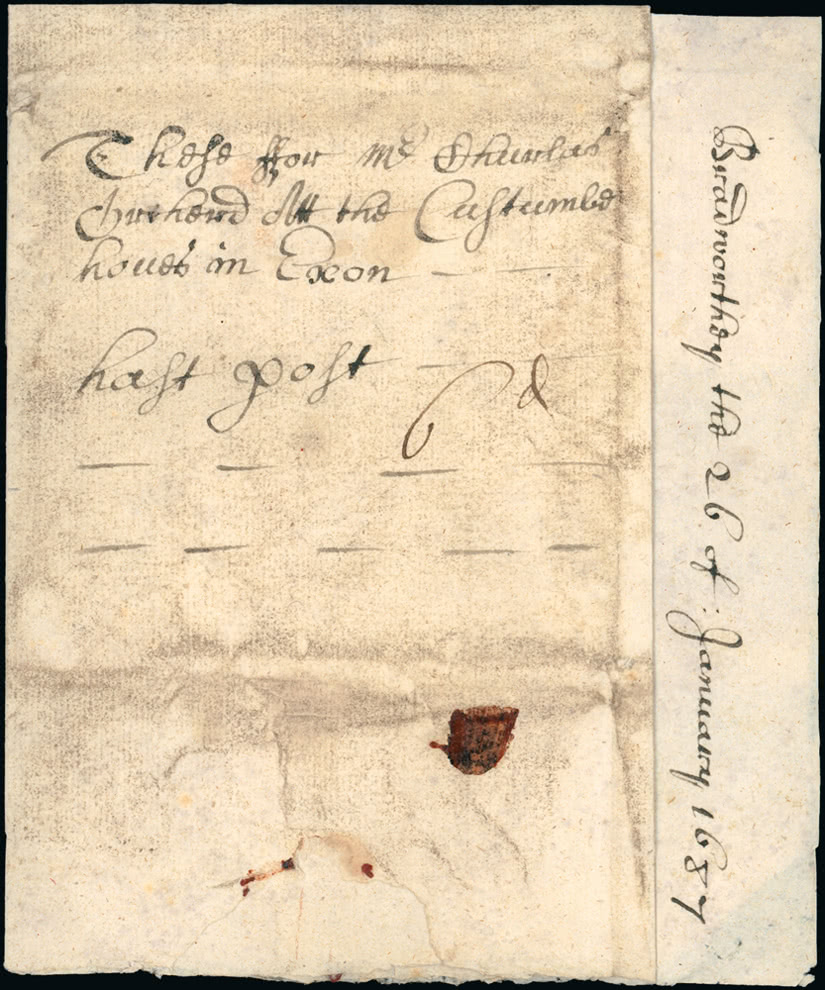 These ffor Mr Charlas
Orcherd Att the Custumbe
houes in Exon
hast post
6d
Bradworthey the 26 of: January 1687